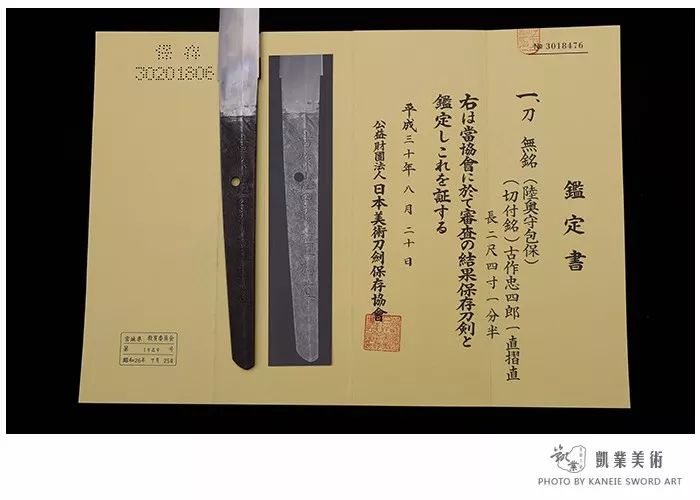 № 3018476
鑑定書
一、刀 無銘(陸奥守包保)
(切付銘)古作忠四郎一直摺直
長二尺四寸一分半
右は當協會に於て審査の結果保存刀剣と
鑑定しこれを証する
平成三十年八月二十日
公益財團法人日本美術刀劍保存協會
保存
30201806
宮城県 教育委員会
第 1989 号
昭和26年 7月 25日
凱業美術
PHOTO BY KANEIE SWORD ART